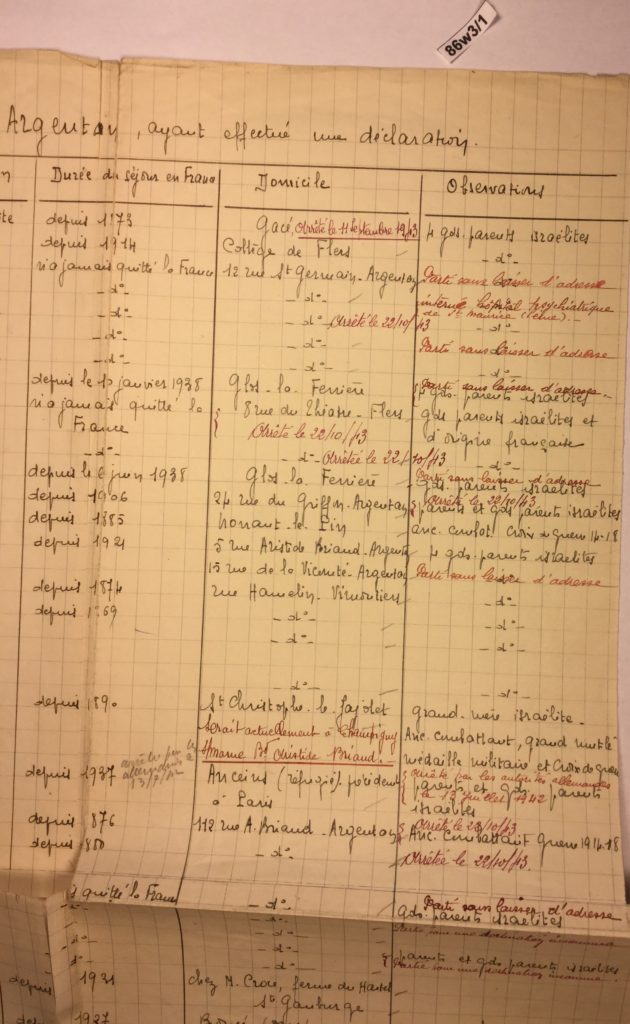 86w3/1
Argentan, ayant effectué une déclaration.
Durée du séjour en France Domicile Observations
depuis 1873 Gacé, Arrêté le 11 Septembre 1943 4 gds. parents israélites
depuis 1914 Collège de Flers - d° -
n'a jamais quitté la France 12 rue St Germain - Argentan Parti sans laisser d'adresse
- d° - - d° - interné hôpital psychiatrique
de St Maurice (Seine). -
- d° - - d° - Arrêté le 22/10/43 - d° -
- d° - - d° - Parti sans laisser d'adresse
- d° - - d° - - d° -
Parti sans laisser d'adresse
depuis le 10 janvier 1938 Glos-la-Ferrière 4 gds. parents israélites
n'a jamais quitté la 8 rue du - Flers gds parents israélites et
France Arrêté le 22/10/43 d'origine française
- d° - - d° - Arrêtée le 22/10/43 - d° -
Parti sans laisser d'adresse
depuis le 6 juin 1938 Glos-la-Ferrière gds. parents israélites
Arrêté le 22/10/43
depuis 1906 24 rue du Griffon-Argentan parents et gds parents israélites
depuis 1885 Nonant-le-Pin Anc. combat. Croix de guerre 14-18
depuis 1921 5 rue Aristide Briand-Argentan 4 gds. parents israélites
15 rue de la Vicomté-Argentan Parti sans laisser d'adresse
depuis 1874 rue Hamelin-Vimoutiers - d° -
depuis 1869 - d° - - d° -
- d° - - d° -
- d° - - d° -
depuis 1890 St Christophe-le-Jajolet grand-mère israélite -
Serait actuellement à Champigny Anc. Combattant, grand mutilé
s/marne Bd Aristide Briand. médaille militaire et Croix de guerre
arrêté par les
allemands le
13/7/42
Arrêté par les autorités allemandes
depuis 1937 (réfugié) précédent parents et gds. parents
le 13 juillet 1942
à Paris israélites
Arrêté le 22/10/43
depuis 1876 112 rue A. Briand-Argentan Anc. Combattant Guerre 1914-18
depuis 1880 - d° - Arrêtée le 22/10/43.
quitté la France - d° - Parti sans laisser d'adresse
gds. parents israélites
- d° - - d° - Partie pour une destination inconnue
- d° - - d° -
- d° - - d° - parents et gds parents israélites
Partie pour une destination inconnue
depuis 1931 chez M. Croix, ferme du
Ste Gauburge
1927